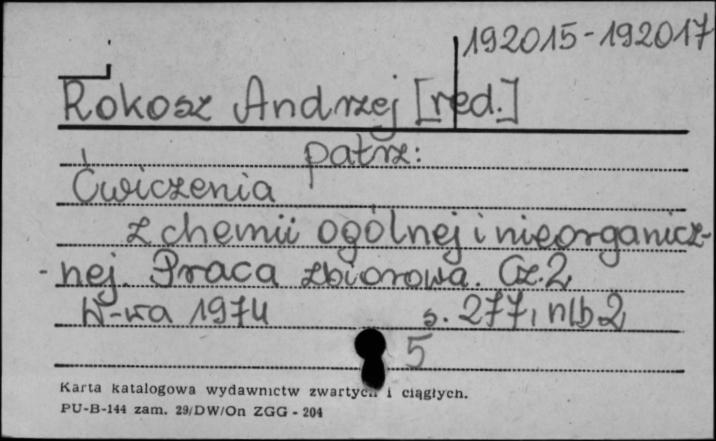 192015-192017
Rokosz Andrzej [red.]
patrz:
Ćwiczenia
z chemii ogólnej i nieorganicz-
-nej. Praca zbiorowa. Cz. 2
W-wa 1974 s. 277, nlb 2
5
Karta katalogowa wydawnictw zwartych i ciągłych.
PU-B-144 zam. 29/DW/On ZGG - 204